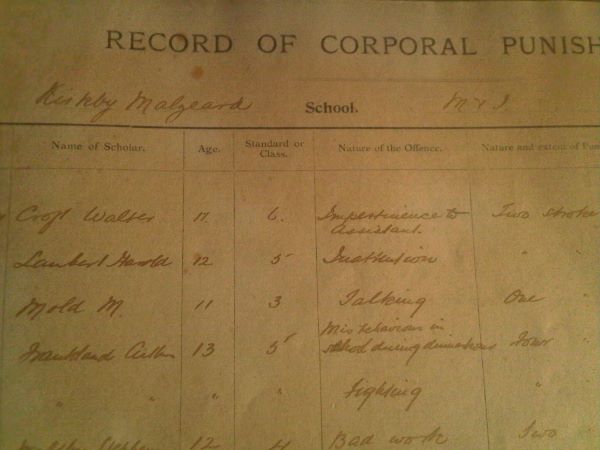 RECORD OF CORPORAL PUNISH
Kirkby Malzeard School. M & I.
Name of Scholar. Age. Standard or Class. Nature of the Offence. Nature and extent of Pun
Croft Walter 11 6. Impertinence to Assistant. Two stroke
Lambert Harold 12 5 Inattention " "
Mold M. 11 3 Talking One "
Frankland 13 5 Misbehaviour in school during Four "
" " " " Fighting " "
12 4 Bad work Two "